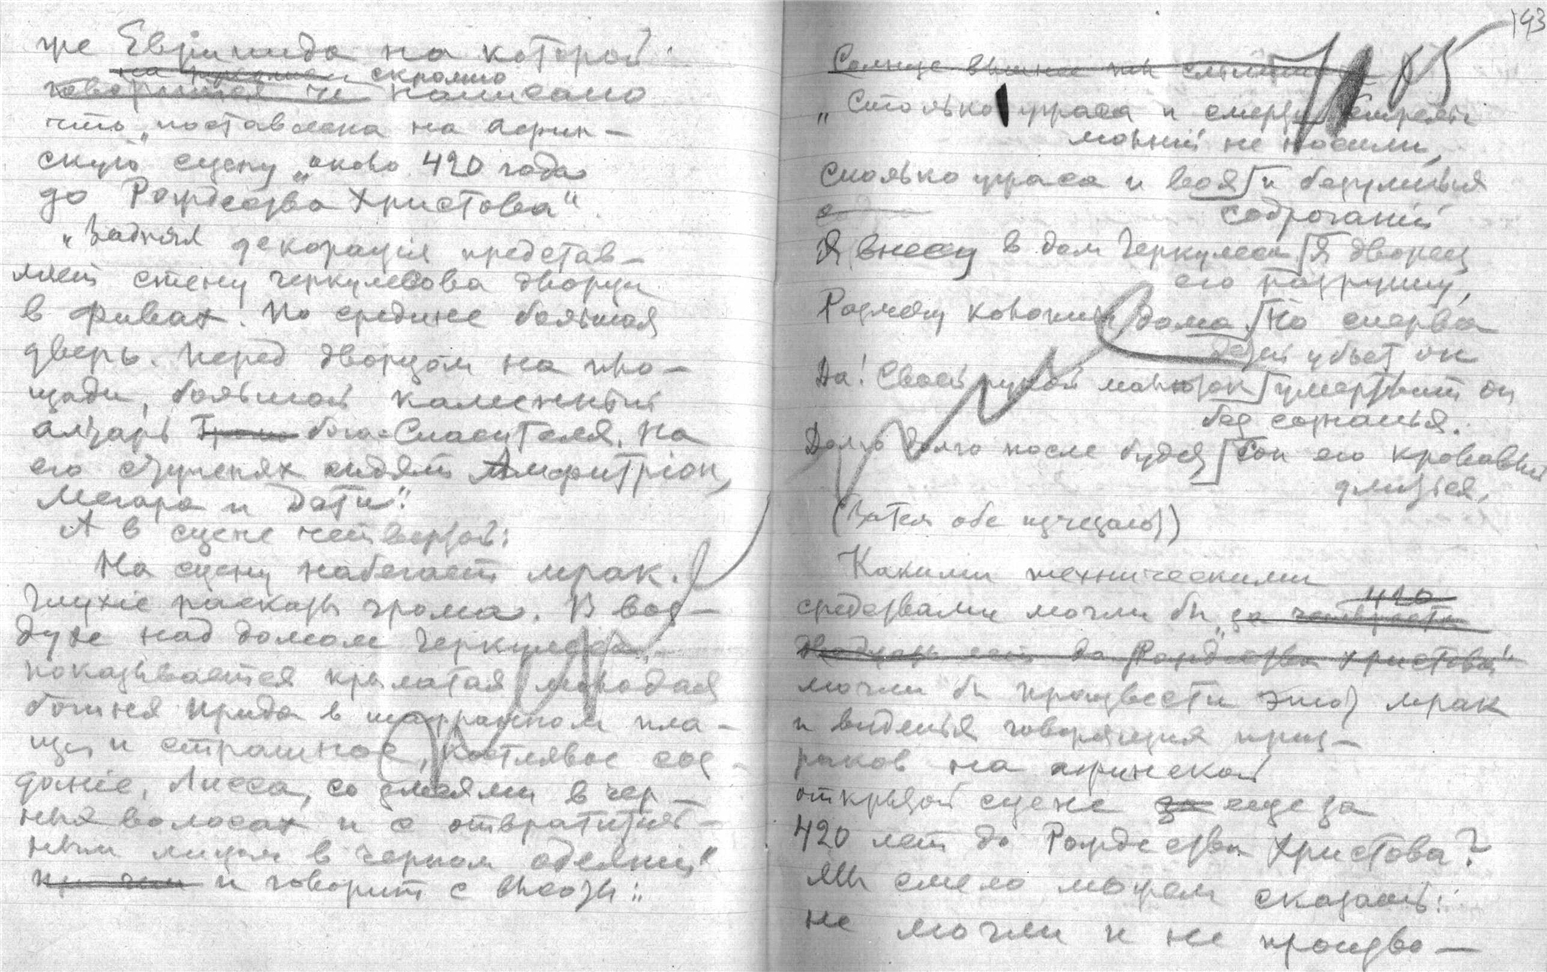 же Еврипида на которой
на
скромно
говорится че написано
что „поставлена на афин-
скую сцену „около 420 года
до Рождества Христова“
„Задняя декорація представ-
ляет стену Геркулесова дворца
в Фивах. По средине большая
дверь. Перед дворцом на пло-
щади, большой каменный
алтарь бога-Спасителя. На
его ступенях сидят Амфитріон,
Мегара и Дети“.
А в сцене четвертой:
На сцену набегает мрак.
Глухіе раскаты грома. В воз-
духе над домом Геркулеса,-
показывается крылатая молодая
богиня Ирида в шафранном пла-
ще и страшное, костлявое соз-
даніе, Лисса, со змеями в чер-
ных волосах и с отвратитель-
ным лицом в черном одеянии“
при чем и говорит с высоты:
193
105
Солнце
„Столько ужаса и смерти стрелы
молний не носили,
сколько ужаса и воя и безумных
содроганий
с
Я внесу в дом Геркулеса Я дворец
его разрушу,
Размечу колонны дома. Но сперва
детей убьет он
Да! Своей рукой малюток умертвит он
без сознанья.
Долго долго после будет Сон его кровавый
длиться.
(Затем обе изчезают)
Какими техническими
420
средствами могли бы за четыреста
двадцать лет до Рождества Христова“
могли бы произвести этот мрак
и виденья говорящих приз-
раков на афинской
открытой сцене за еще за
420 лет до Рождества Христова?
Мы смело можем сказать:
не могли и не произво-